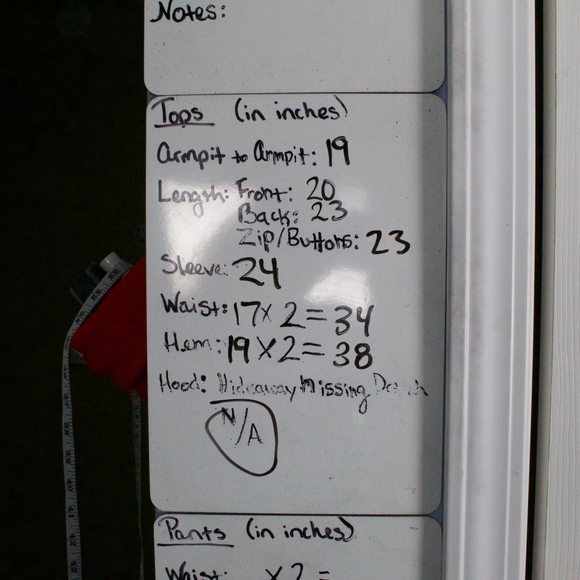 Notes:
Tops (in inches)
Armpit to Armpit: 19
Length: Front: 20
Back: 23
Zip/Buttons: 23
Sleeve: 24
Waist: 17 x 2 = 34
Hem: 19 x 2 = 38
Hood: Hideaway Missing Detach
N/A
Pants (in inches)
Waist: x 2 =